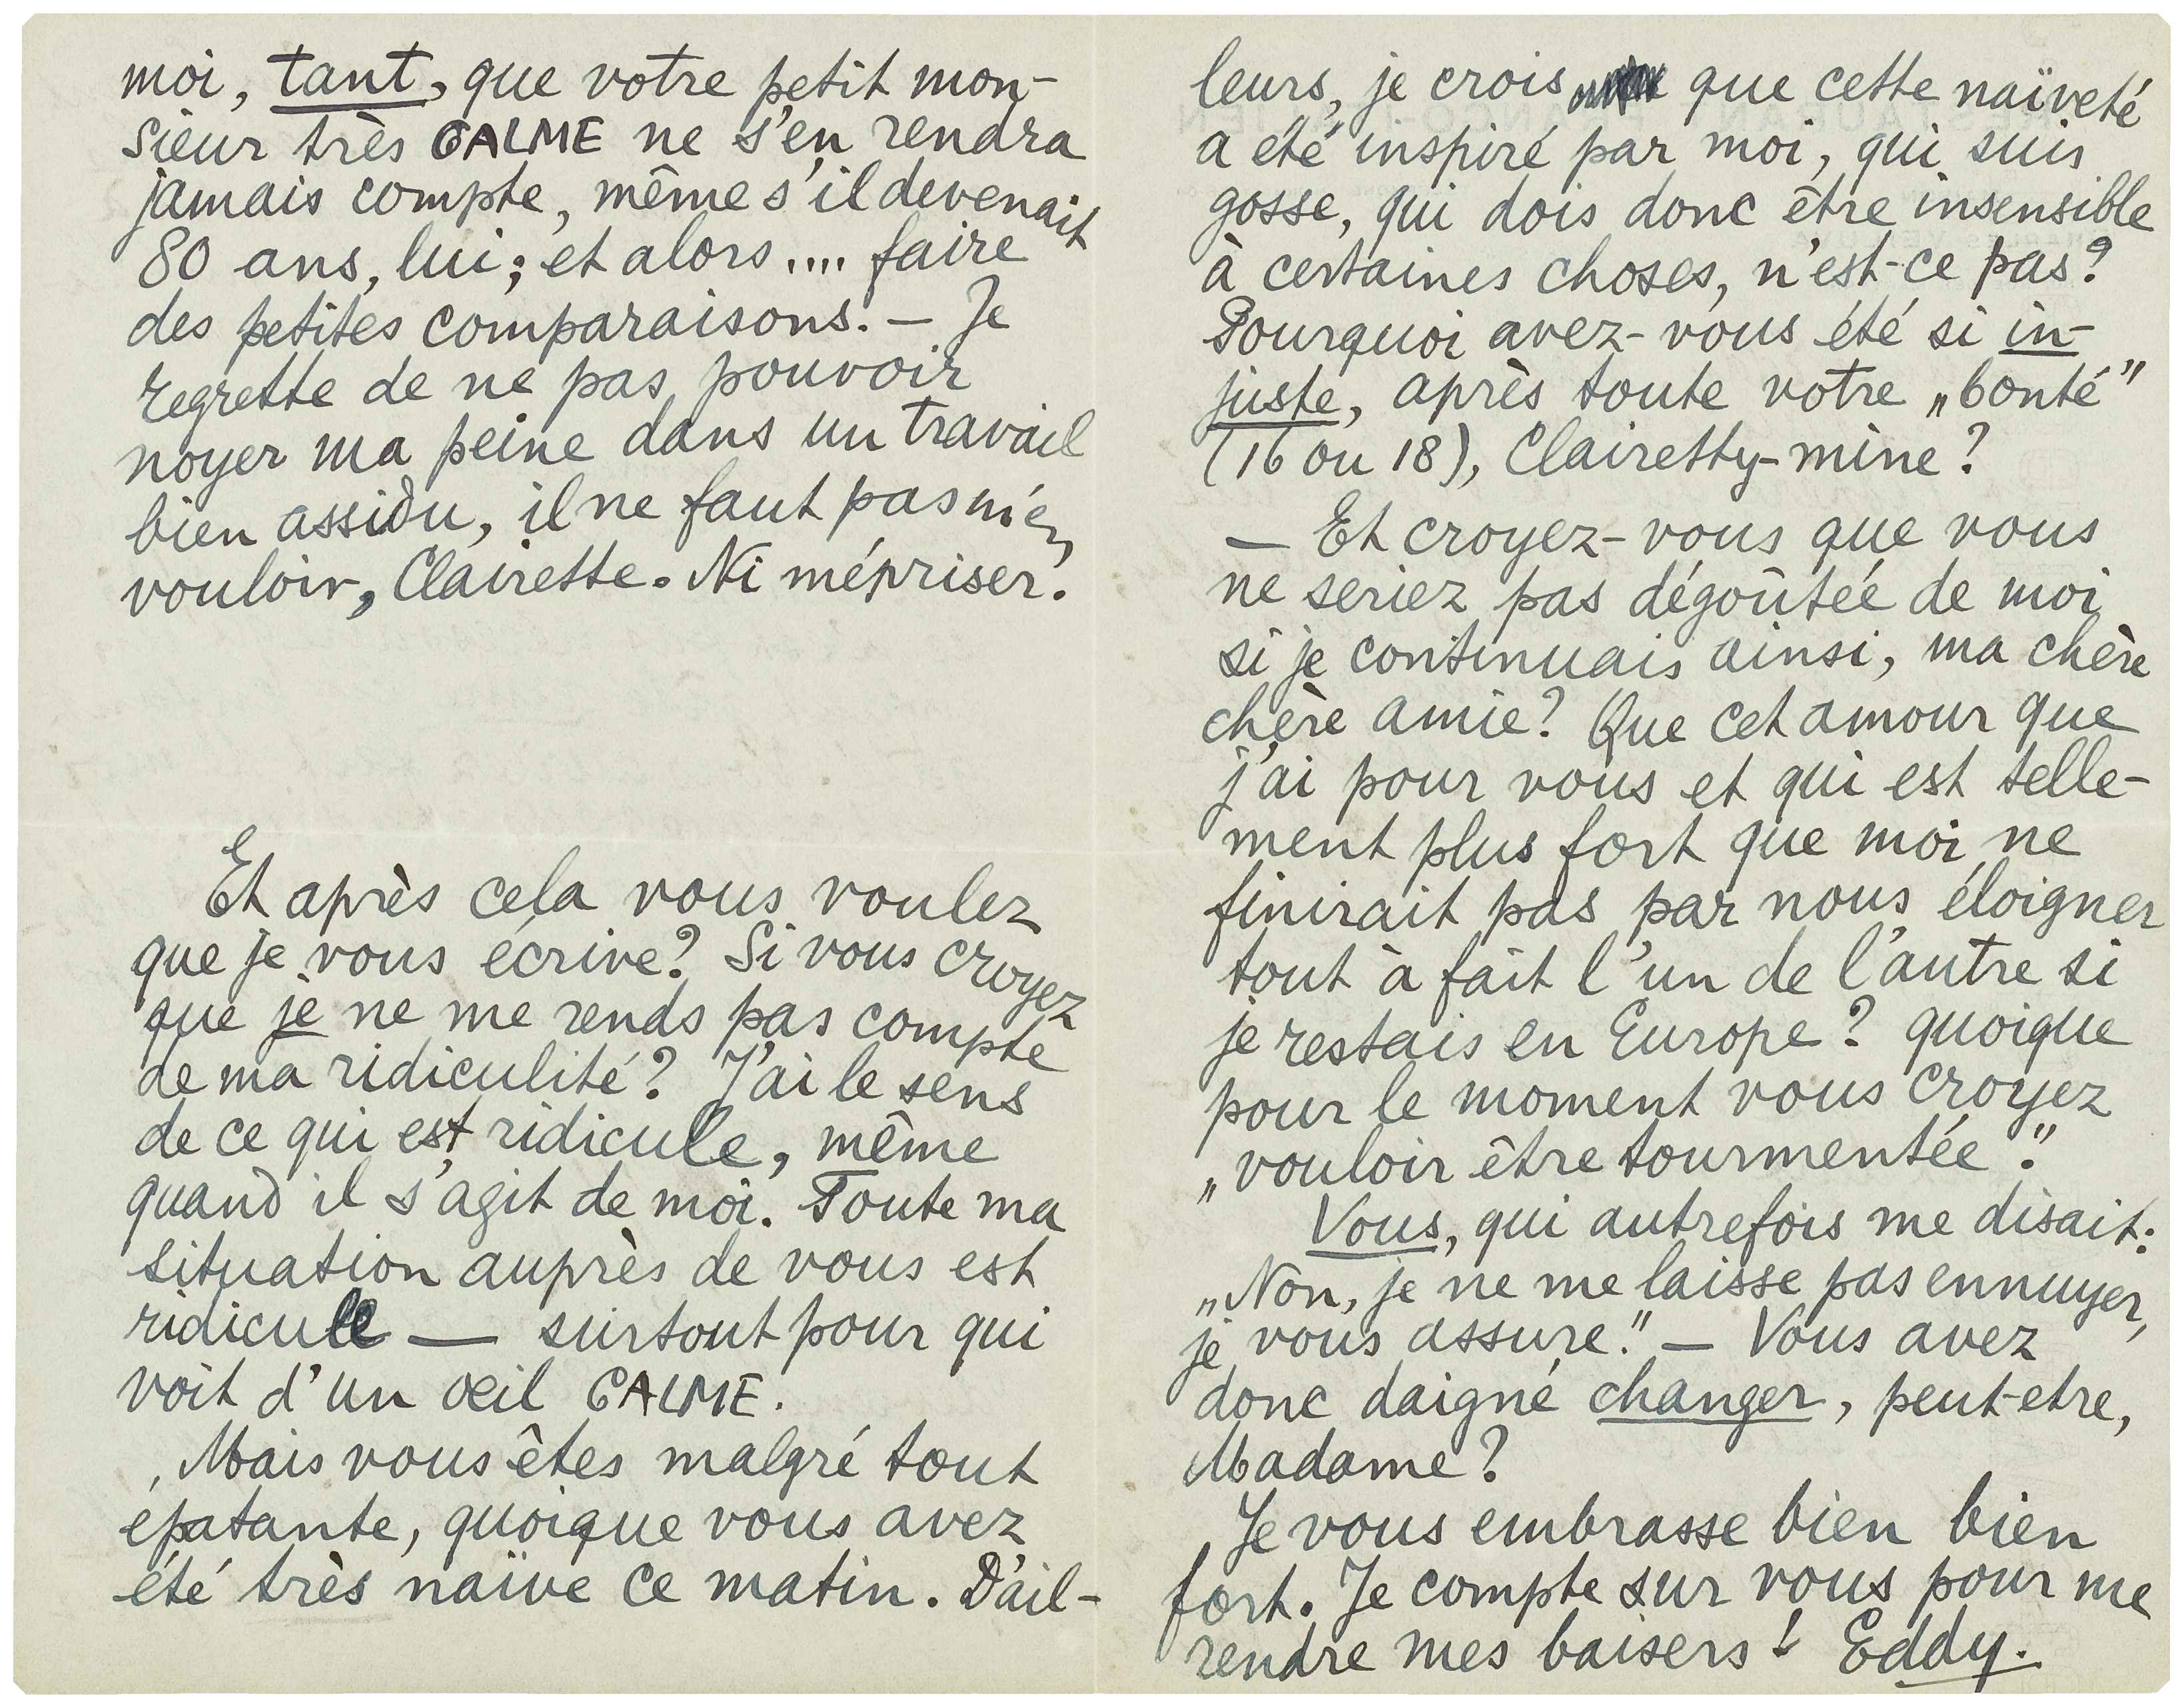 moi, tant, que votre petit mon-
sieur très CALME ne s'en rendra
jamais compte, même s'il devenait
80 ans, lui; et alors .... faire
des petites comparaisons. — Je
regrette de ne pas pouvoir
noyer ma peine dans un travail
bien assidu, il ne faut pas m'en
vouloir, Clairette. Ni mépriser.
Et après cela vous voulez
que je vous écrive? Si vous croyez
que je ne me rends pas compte
de ma ridiculité? J'ai le sens
de ce qui est ridicule, même
quand il s'agit de moi. Toute ma
situation auprès de vous est
ridicule — surtout pour qui
voit d'un œil CALME.
Mais vous êtes malgré tout
épatante, quoique vous avez
été très naïve ce matin. D'ail-
leurs, je crois que cette naïveté
a été inspiré par moi, qui suis
gosse, qui dois donc être insensible
à certaines choses, n'est-ce pas?
Pourquoi avez-vous été si in-
juste, après toute votre „bonté"
(16 ou 18), Clairetty-mine?
— Et croyez-vous que vous
ne seriez pas dégoûtée de moi
si je continuais ainsi, ma chère
chère amie? Que cet amour que
j'ai pour vous et qui est telle-
ment plus fort que moi ne
finirait pas par nous éloigner
tout à fait l'un de l'autre si
je restais en Europe? quoique
pour le moment vous croyez
„vouloir être tourmentée".
Vous, qui autrefois me disait:
„Non, je ne me laisse pas ennuyer,
je vous assure." — Vous avez
donc daigné changer, peut-etre,
Madame?
Je vous embrasse bien bien
fort. Je compte sur vous pour me
rendre mes baisers! Eddy.